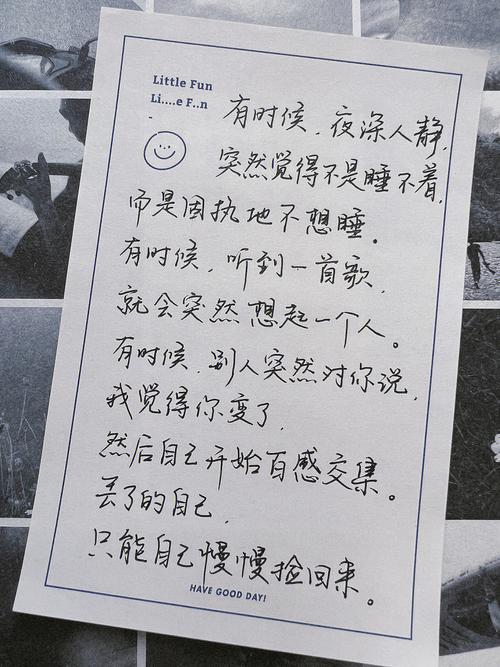 Little Fun
Li....e F..n
有时候，夜深人静，
突然觉得不是睡不着，
而是固执地不想睡。
有时候，听到一首歌，
就会突然想起一个人。
有时候，别人突然对你说，
我觉得你变了，
然后自己开始百感交集。
丢了的自己，
只能自己慢慢捡回来。
HAVE GOOD DAY!